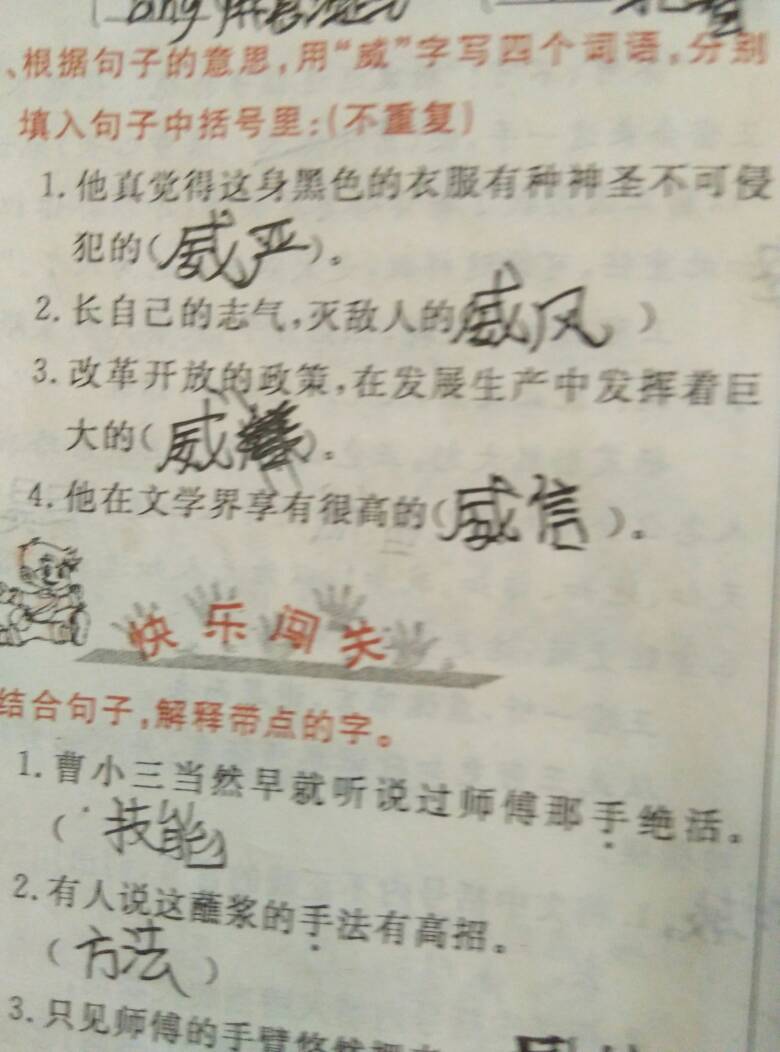 、根据句子的意思,用“威”字写四个词语,分别
填入句子中括号里:(不重复)
1.他真觉得这身黑色的衣服有种神圣不可侵
犯的(威严)。
2.长自己的志气,灭敌人的(威风)
3.改革开放的政策,在发展生产中发挥着巨
大的(威)。
4.他在文学界享有很高的(威信)。
快乐闯关
结合句子,解释带点的字。
1.曹小三当然早就听说过师傅那手绝活。
(技能
2.有人说这蘸浆的手法有高招。
(方法)
3.只见师傅的手臂悠然